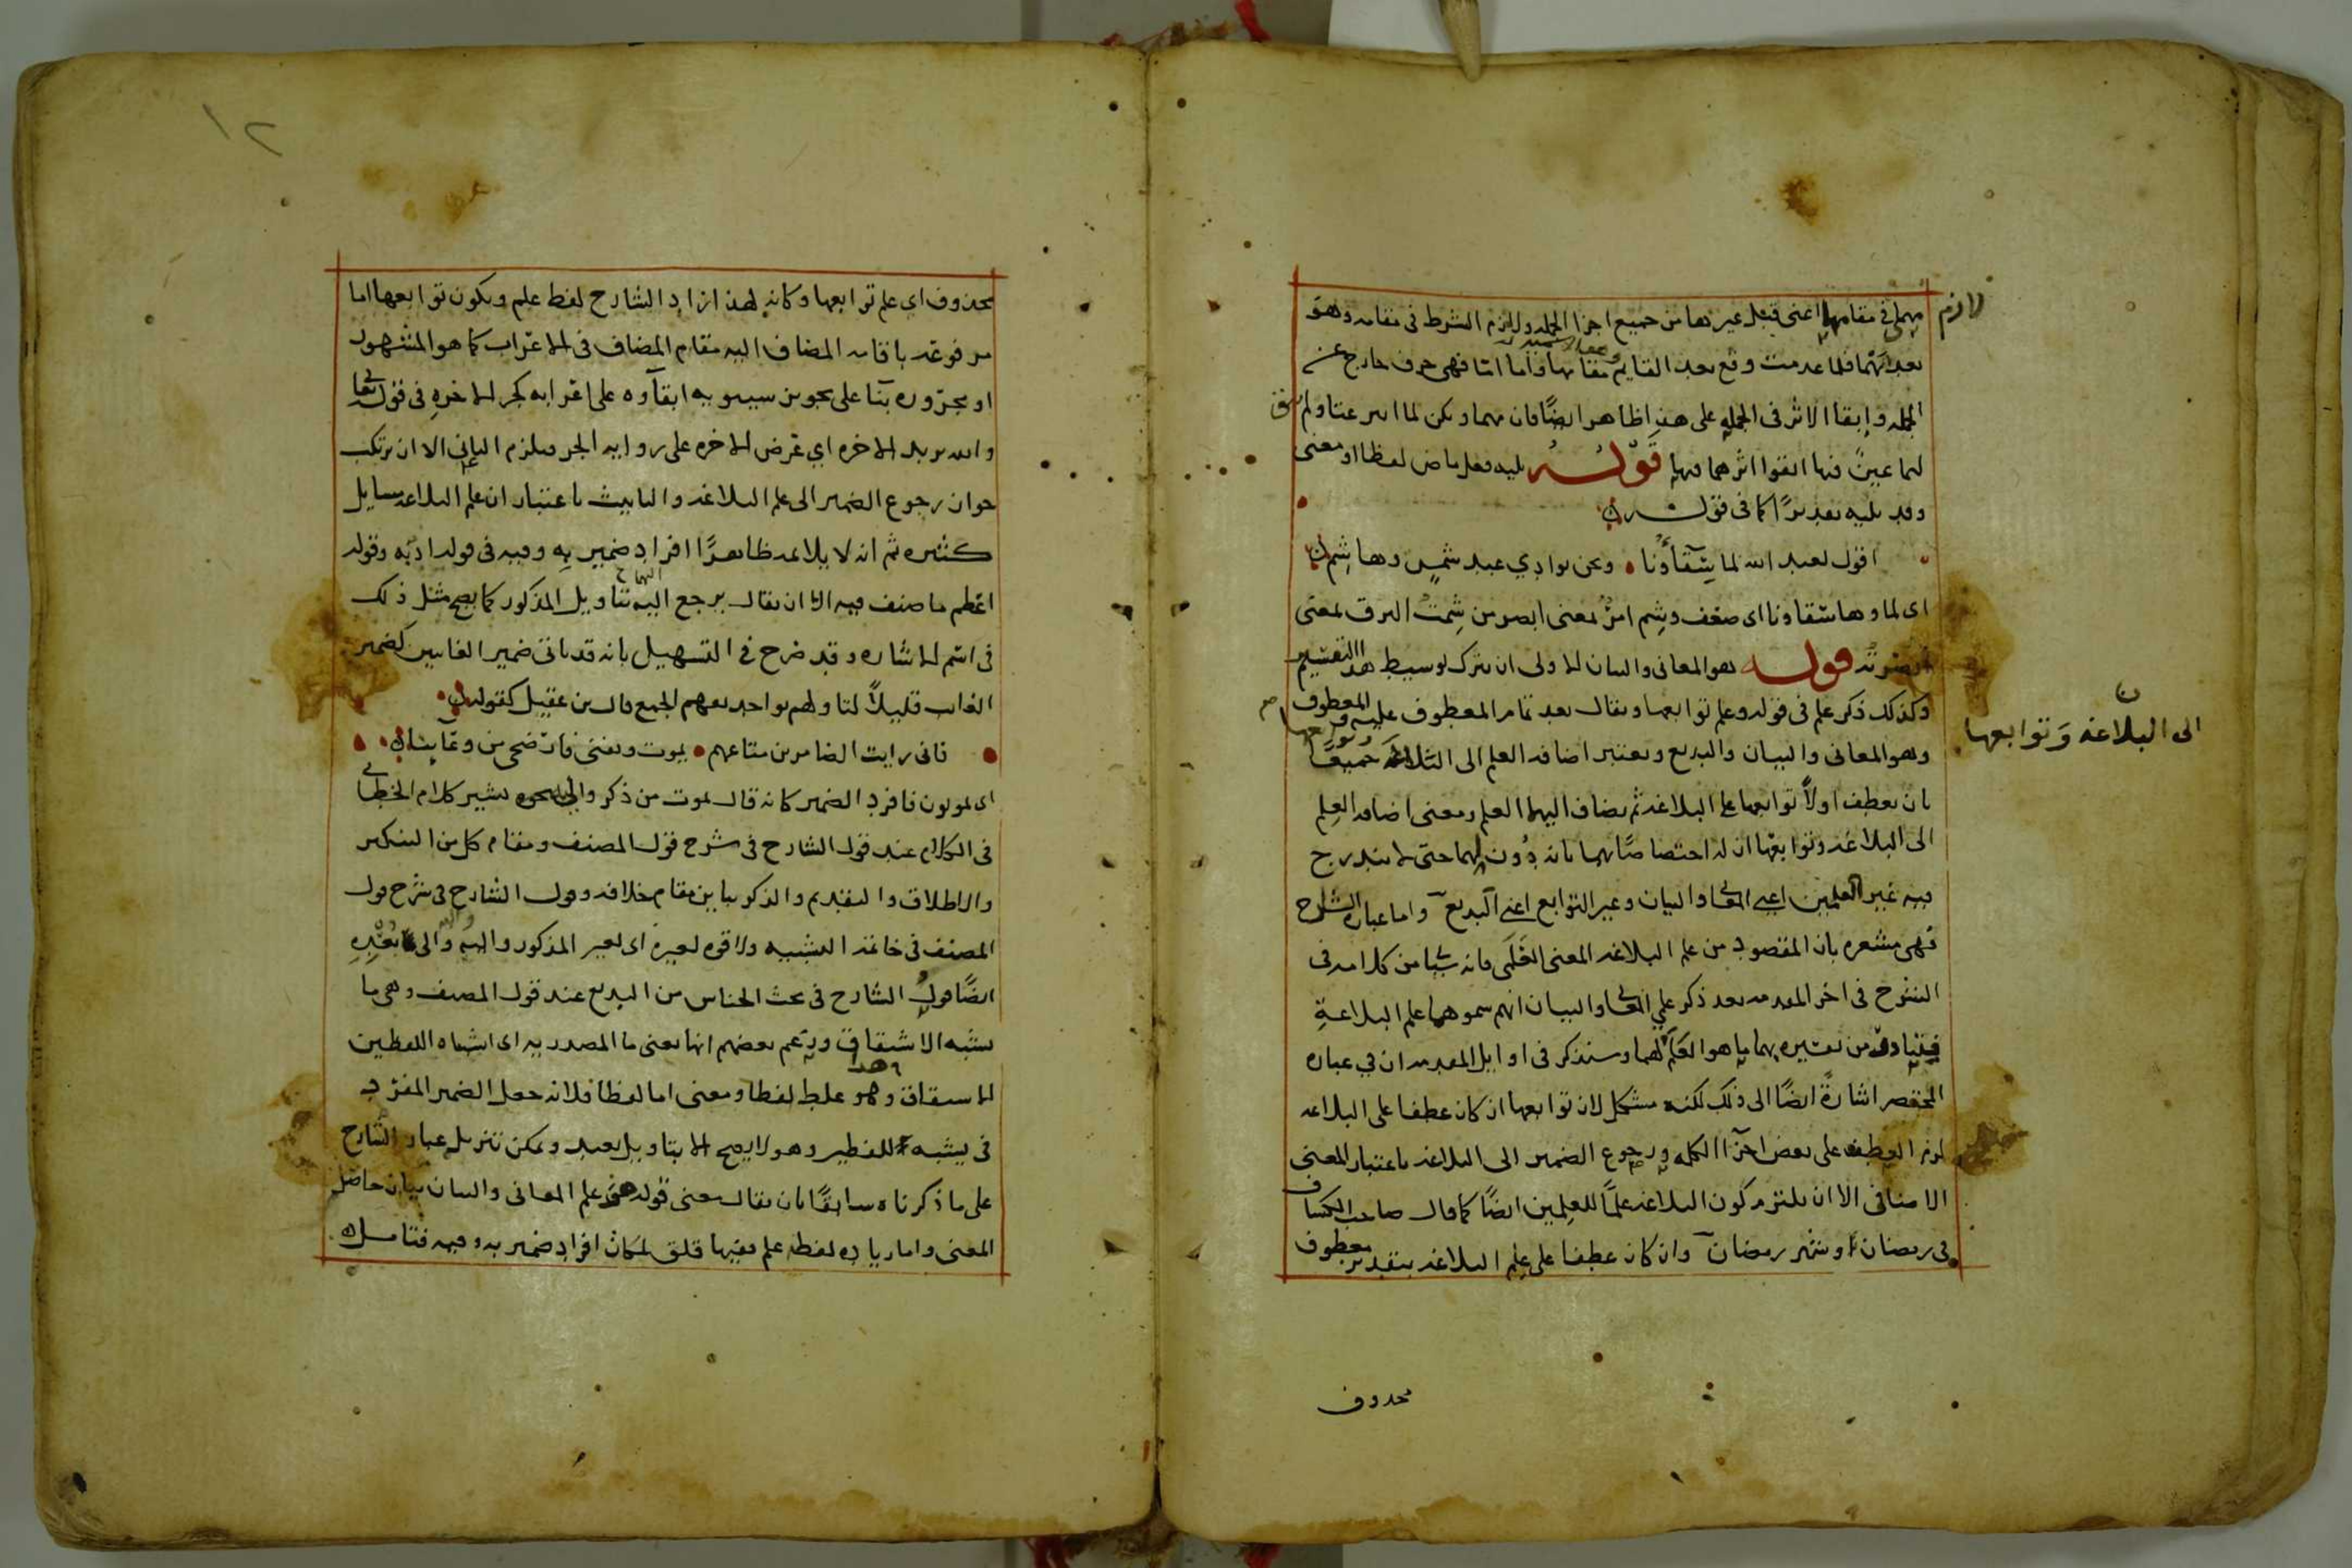 مهما في مقامها اعني قبل غيرها من جميع اجزا الجمله ولازم الشرط في مقامه وهو
لازم
بعد انهما فلما عدمت وقع بعد القايم مقامها واما امّا فهي حرف خارج عن
الجمله وابقا الاثر في الجمله على هذا ظاهر ايضًا فان مهما ويكن لما اسر عنا ولم
لهما عين فيها ابقوا اثرهما فيها قوله يليه فعل ماض لفظا او معنى
وقد يليه تقديرًا كما في قوله
اقول لعبد الله لما سقاؤنا ونحن بوادي عبد شمس وهاشم
اي لما وها سقاونا اي ضعف وشم امر بمعنى ابصر من شمت البرق بمعنى
ابصرته قوله هو المعاني والبيان الاولى ان يترك توسيط هذا التفسير
وكذلك ذكر علم في قوله وعلم توابعها ويقال بعد تمام المعطوف عليه والمعطوف
وهو المعاني والبيان والبديع ويعتبر اضافه العلم الى البلاغه جميعًا
الى البلاغه وتوابعها
بان يعطف اولاً توابعها على البلاغه ثم يضاف اليهما العلم ومعنى اضافه العلم
الى البلاغه وتوابعها ان له اختصاصًا بهما بانه دون لهما حتى لا يندرج
فيه غير العلمين اعني المعاني والبيان وغير التوابع اعني البديع واما عباره الشارح
فهي مشعره بان المقصود من علم البلاغه المعنى العلمي فانه سيا من كلامه في
الشرح في اخر المقدمه بعد ذكر علمي المعاني والبيان انهم سموهما علم البلاغةِ
فيتبادر من تعبيره بهما ما هو العلم لهما وسنذكر في اوايل المقدمه ان في عباره
المختصر اشارةً ايضًا الى ذلك لكنه مشكل لان توابعها ان كان عطفا على البلاغه
لزم العطف على بعض اجزا الكلمه ورجوع الضمير الى البلاغه باعتبار المعنى
الاضافي الا ان يلتزم كون البلاغه علمًا للعلمين ايضًا كما قال صاحب الكشاف
في رمضان وشهر رمضان وان كان عطفا على علم البلاغه بتقدير معطوف
محذوف
١٢
محذوف اي علم توابعها وكانه لهذا زاد الشارح لفظ علم ويكون توابعها اما
مرفوعه باقامه المضاف اليه مقام المضاف في الاعراب كما هو المشهور
او مجروره بنا على تجويز سيبويه ابقاوه على اعرابه كجر الاخره في قوله تعالى
والله يريد الاخره اي عرض الاخره على روايه الجر فيلزم الثاني الا ان يرتكب
جواز رجوع الضمير الى علم البلاغه والتانيث باعتبار ان علم البلاغه مسايل
كثيره ثم انه لا يلايمه ظاهرًا افراد ضمير به وفيه في قوله ادبه وقوله
اعظم ما صنف فيه الا ان يقال يرجع اليهما بتاويل المذكور كما يصح مثل ذلك
في اسم الاشاره وقد صرح في التسهيل بانه قد ياتي ضمير الغايبين كضمير
الغايب قليلاً لتاولهم بواحد يفهم الجمع قال بن عقيل كقوله
فاني رايت الضامرين متاعهم يموت ويفنى فارضخي من وعائيا
اي يموتون فافرد الضمير كانه قال يموت من ذكر والى نحوه يشير كلام الخطابي
في الكلام عند قول الشارح في شرح قول المصنف ومقام كل من التنكير
والاطلاق والتقديم والذكر يباين مقام خلافه وقول الشارح في شرح قول
المصنف في خاتمه التشبيه ولا قوه لغيره اي لغير المذكور والى
ايضًا قول الشارح في بحث الجناس من البديع عند قول المصنف وهي ما
يشبه الاشتقاق وزعم بعضهم انها يعني ما المصدريه اي اشباه اللفظين
الاشتقاق وهو غلط لفظا ومعنى اما لفظا فلانه جعل الضمير المفرد
في يشبه للفظين وهو لا يصح الا بتاويل بعيد ويمكن تنزيل عباره الشارح
على ما ذكرناه سابقًا بان يقال معنى قوله هو علم المعاني والبيان بيان حاصل
المعنى واما زياده لفظه علم ففيها قلق لمكان افراد ضمير به وفيه فتامل